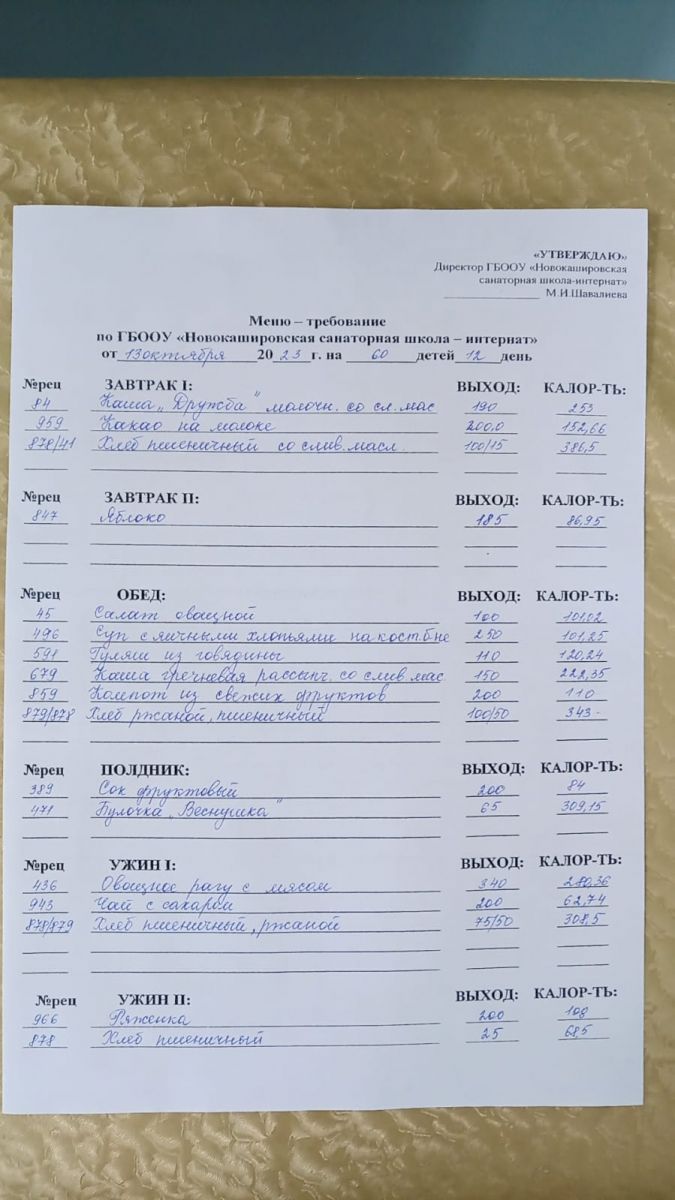 «УТВЕРЖДАЮ»
Директор ГБООУ «Новокашировская
санаторная школа-интернат»
________________ М.И.Шавалиева
Меню – требование
по ГБООУ «Новокашировская санаторная школа – интернат»
от 13 октября 2023 г. на 60 детей 12 день
№рец ЗАВТРАК I: ВЫХОД: КАЛОР-ТЬ:
84 Каша „Дружба" молочн. со сл. мас 190 253
959 Какао на молоке 200,0 152,66
878/41 Хлеб пшеничный со слив. масл. 100/15 386,5
№рец ЗАВТРАК II: ВЫХОД: КАЛОР-ТЬ:
847 Яблоко 185 86,95
№рец ОБЕД: ВЫХОД: КАЛОР-ТЬ:
45 Салат овощной 100 101,02
496 Суп с яичными хлопьями на кост. б-не 250 101,25
591 Гуляш из говядины 110 120,24
679 Каша гречневая рассыпч. со слив мас 150 222,35
859 Компот из свежих фруктов 200 110
879/878 Хлеб ржаной, пшеничный 100/50 343
№рец ПОЛДНИК: ВЫХОД: КАЛОР-ТЬ:
389 Сок фруктовый 200 84
471 Булочка „Веснушка" 65 309,15
№рец УЖИН I: ВЫХОД: КАЛОР-ТЬ:
436 Овощное рагу с мясом 340 280,36
943 Чай с сахаром 200 62,74
878/879 Хлеб пшеничный, ржаной 75/50 308,5
№рец УЖИН II: ВЫХОД: КАЛОР-ТЬ:
966 Ряженка 200 108
878 Хлеб пшеничный 25 68,5